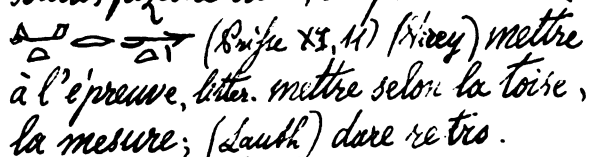 (Prisse XI, 11) (Virey) mettre
à l'épreuve, litter. mettre selon la toise,
la mesure; (Lauth) dare retro.